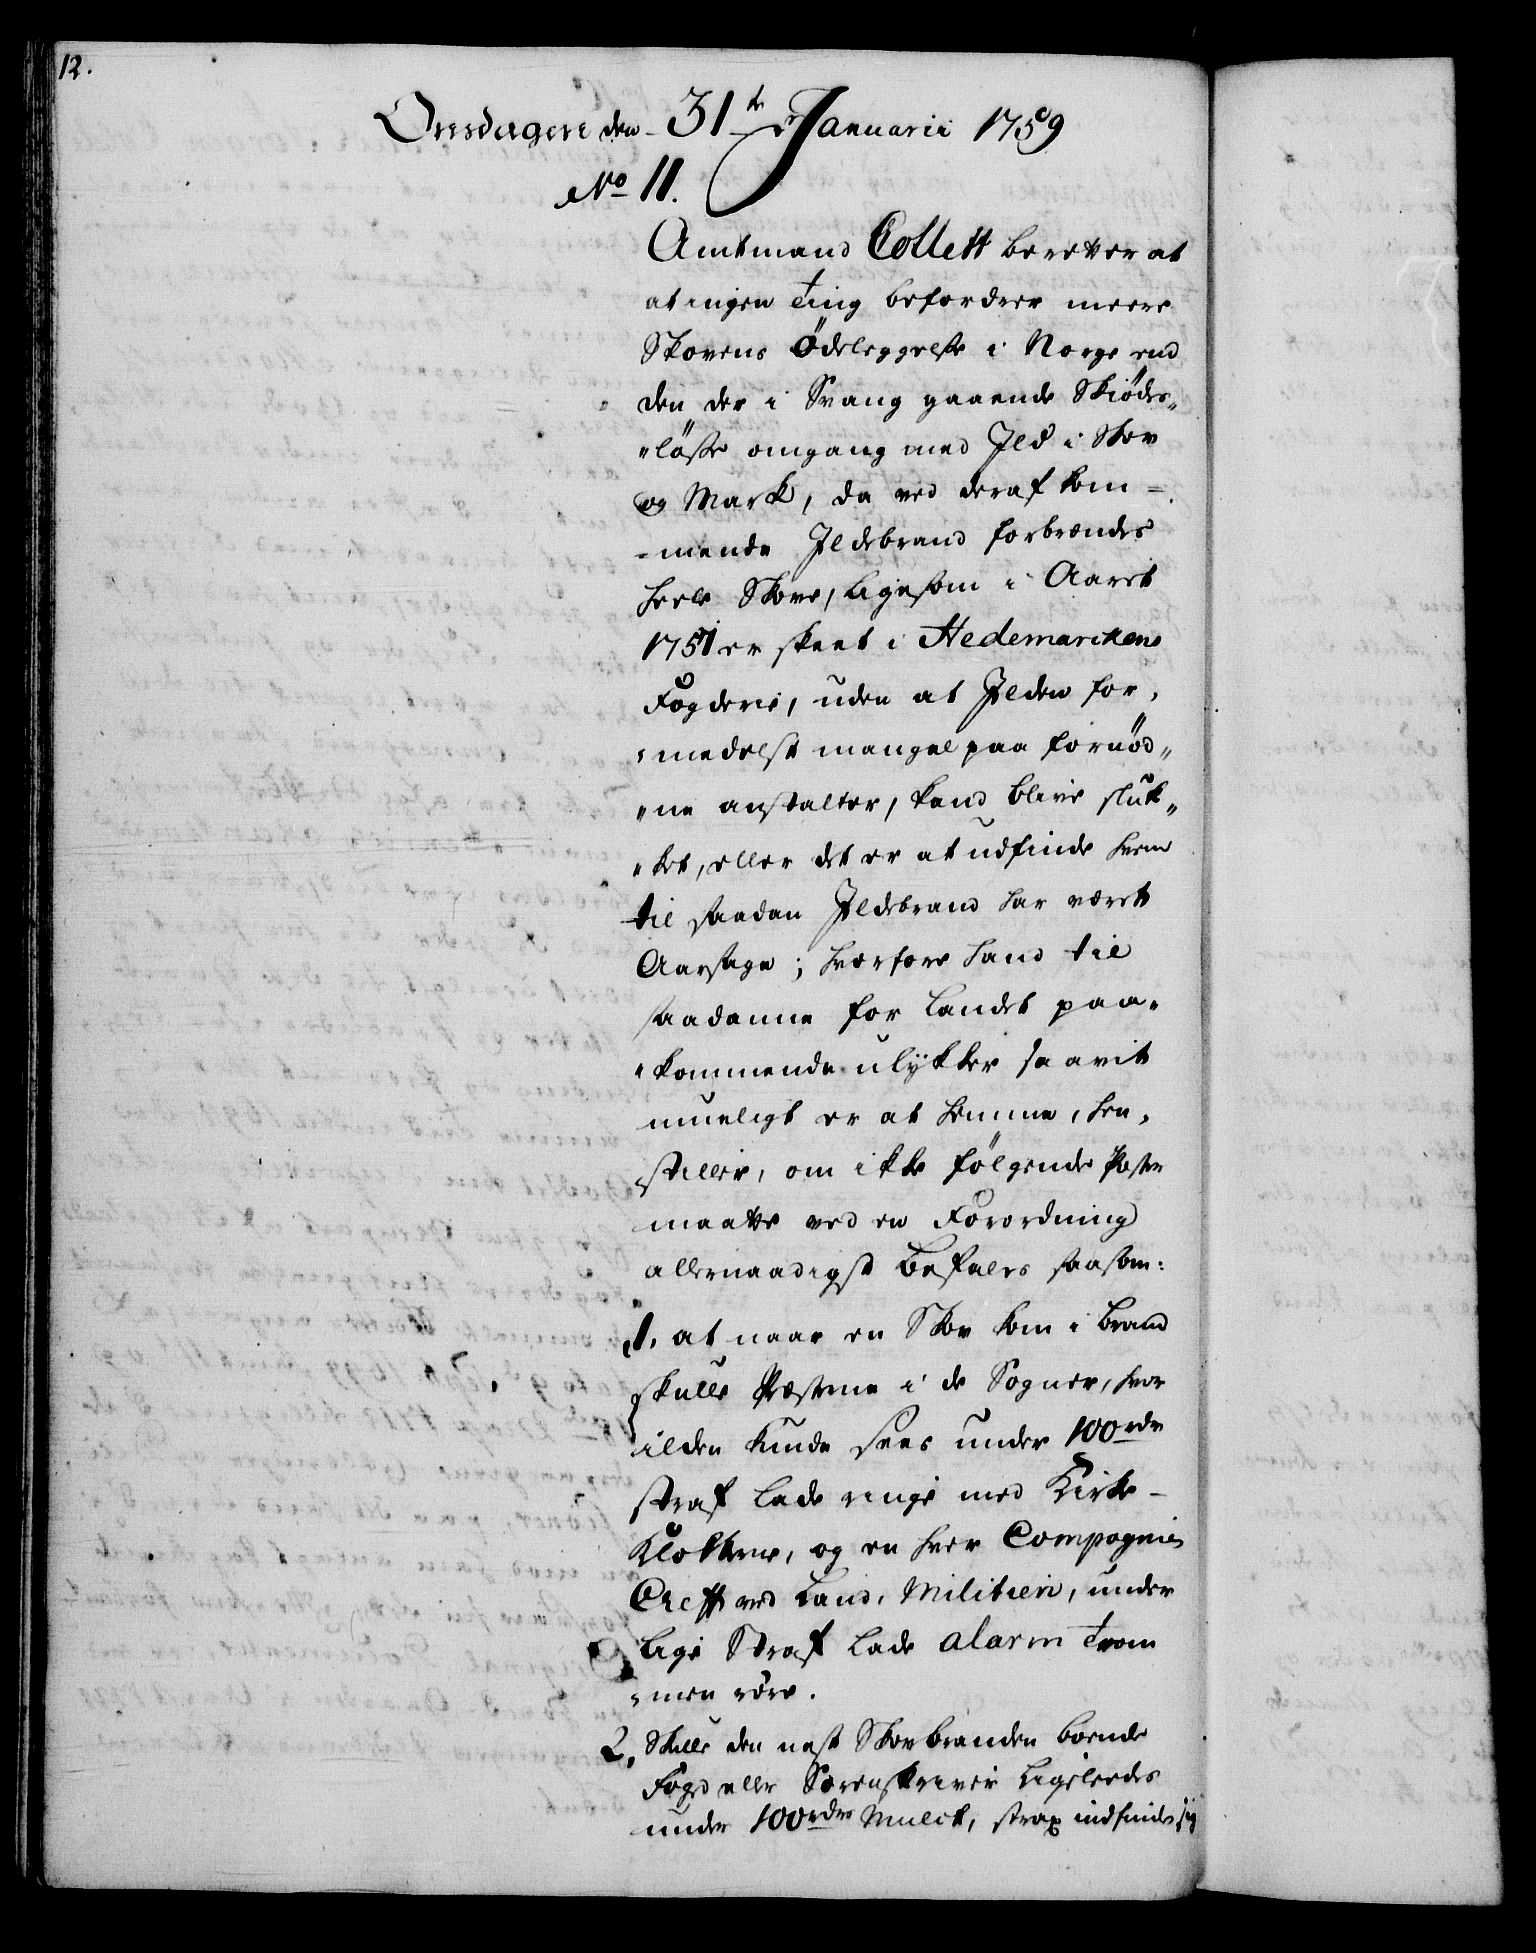 12.
Onsdagen den 31te Januarii 1759
No 11.
Amtmand Collett beretter at
at ingen Ting befordrer meere
Skovens Ödeleggelse i Norge end
den der i Svang gaaende Skiödes„
„löse omgang med Ild i Skov
og Mark, da ved deraf kom=
=mende Ildebrand forbrendes
heele Skove, ligesom i Aaret
1751 er skeet i Hedemarckens
Fogderie, uden at Ilden for„
„medelst mangel paa fornöd„
„ne anstalter, kand blive sluk„
„ket, eller det er at udfinde hvem
til saadan Ildebrand har været
Aarsage; hvorfore hand til
saadanne for Landet paa„
„kommende ulÿkker saavit
mueligt er at hemme, hen„
stiller, om ikke fölgende Poster
maatte ved en Forordning
allernaadigst befales saasom:
1, at naar en Skov kom i brand
skulle Præsterne i de Sogner, hvor
ilden kunde sees under 100rdr
straf lade ringe med Kirke-
Klokkerne, og en hver Compagnie
Cheff ved Land, Militien, under
lige Straf lade alarm Trom
„men röre.
2, Skulle den nest Skovbranden boende
Foged eller Sorenskriver ligeleedes
under 100rdrs Mulct, strax indfinde sig